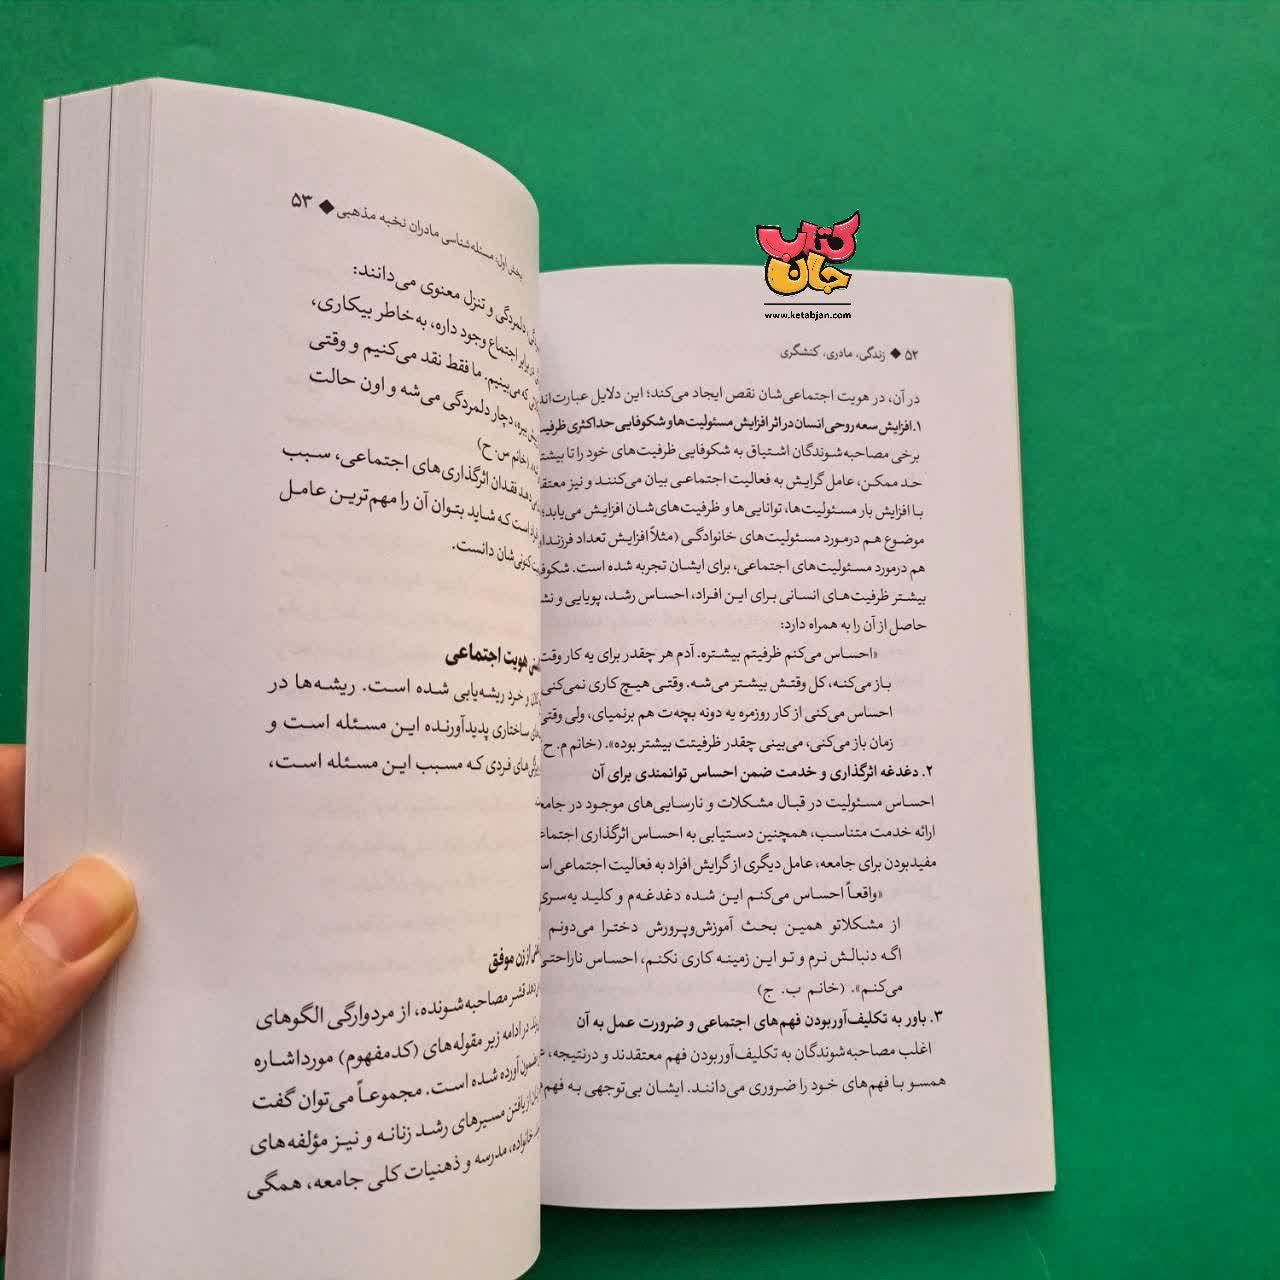 کتاب جان
www.ketabjan.com
۵۲ ◆ زندگی، مادری، کنشگری
در آن، در هویت اجتماعی‌شان نقص ایجاد می‌کند؛ این دلایل عبارت‌اند
۱. افزایش سعه روحی انسان در اثر افزایش مسئولیت‌ها و شکوفایی حداکثری
برخی مصاحبه‌شوندگان اشتیاق به شکوفایی ظرفیت‌های خود را تا
حد ممکن، عامل گرایش به فعالیت اجتماعی بیان می‌کنند و نیز
با افزایش بار مسئولیت‌ها، توانایی‌ها و ظرفیت‌های‌شان افزایش می‌یابد؛
موضوع هم درمورد مسئولیت‌های خانوادگی (مثلاً افزایش تعداد
هم درمورد مسئولیت‌های اجتماعی، برای ایشان تجربه شده است.
بیشتر ظرفیت‌های انسانی برای این افراد، احساس رشد، پویایی و
حاصل از آن را به همراه دارد:
«احساس می‌کنم ظرفیتم بیشتره. آدم هر چقدر برای یه کار وقت
باز می‌کنه، کل وقتش بیشتر می‌شه. وقتی هیچ کاری نمی‌کنی
احساس می‌کنی از کار روزمره یه دونه بچه‌ت هم برنمیای، ولی وقتی
زمان باز می‌کنی، می‌بینی چقدر ظرفیتت بیشتر بوده». (خانم م. ح
۲. دغدغه اثرگذاری و خدمت ضمن احساس توانمندی برای آن
احساس مسئولیت در قبال مشکلات و نارسایی‌های موجود در
ارائه خدمت متناسب، همچنین دستیابی به احساس اثرگذاری
مفیدبودن برای جامعه، عامل دیگری از گرایش افراد به فعالیت اجتماعی
«واقعاً احساس می‌کنم این شده دغدغه‌م و کلید یه‌سری
از مشکلاتو همین بحث آموزش‌وپرورش دخترا می‌دونم
اگه دنبالش نرم و تو این زمینه کاری نکنم، احساس ناراحتی
می‌کنم». (خانم ب. ج)
۳. باور به تکلیف‌آوربودن فهم‌های اجتماعی و ضرورت عمل به آن
اغلب مصاحبه‌شوندگان به تکلیف‌آوربودن فهم معتقدند و درنتیجه،
همسو با فهم‌های خود را ضروری می‌دانند. ایشان بی‌توجهی به
بخش اول: مسئله‌شناسی مادران نخبه مذهبی ◆ ۵۳
دلمردگی و تنزل معنوی می‌دانند:
اجتماع وجود داره، به‌خاطر بیکاری،
که می‌بینیم. ما فقط نقد می‌کنیم و وقتی
دچار دلمردگی می‌شه و اون حالت
(خانم س. ح)
فقدان اثرگذاری‌های اجتماعی، سبب
است که شاید بتوان آن را مهم‌ترین عامل
کنونی‌شان دانست.
هویت اجتماعی
و خرد ریشه‌یابی شده است. ریشه‌ها در
ساختاری پدیدآورنده این مسئله است و
فردی که مسبب این مسئله است،
از زن موفق
قشر مصاحبه‌شونده، از مردوارگی الگوهای
در ادامه زیر مقوله‌های (کدمفهوم) مورداشاره
آورده شده است. مجموعاً می‌توان گفت
از یافتن مسیرهای رشد زنانه و نیز مؤلفه‌های
خانواده، مدرسه و ذهنیات کلی جامعه، همگی